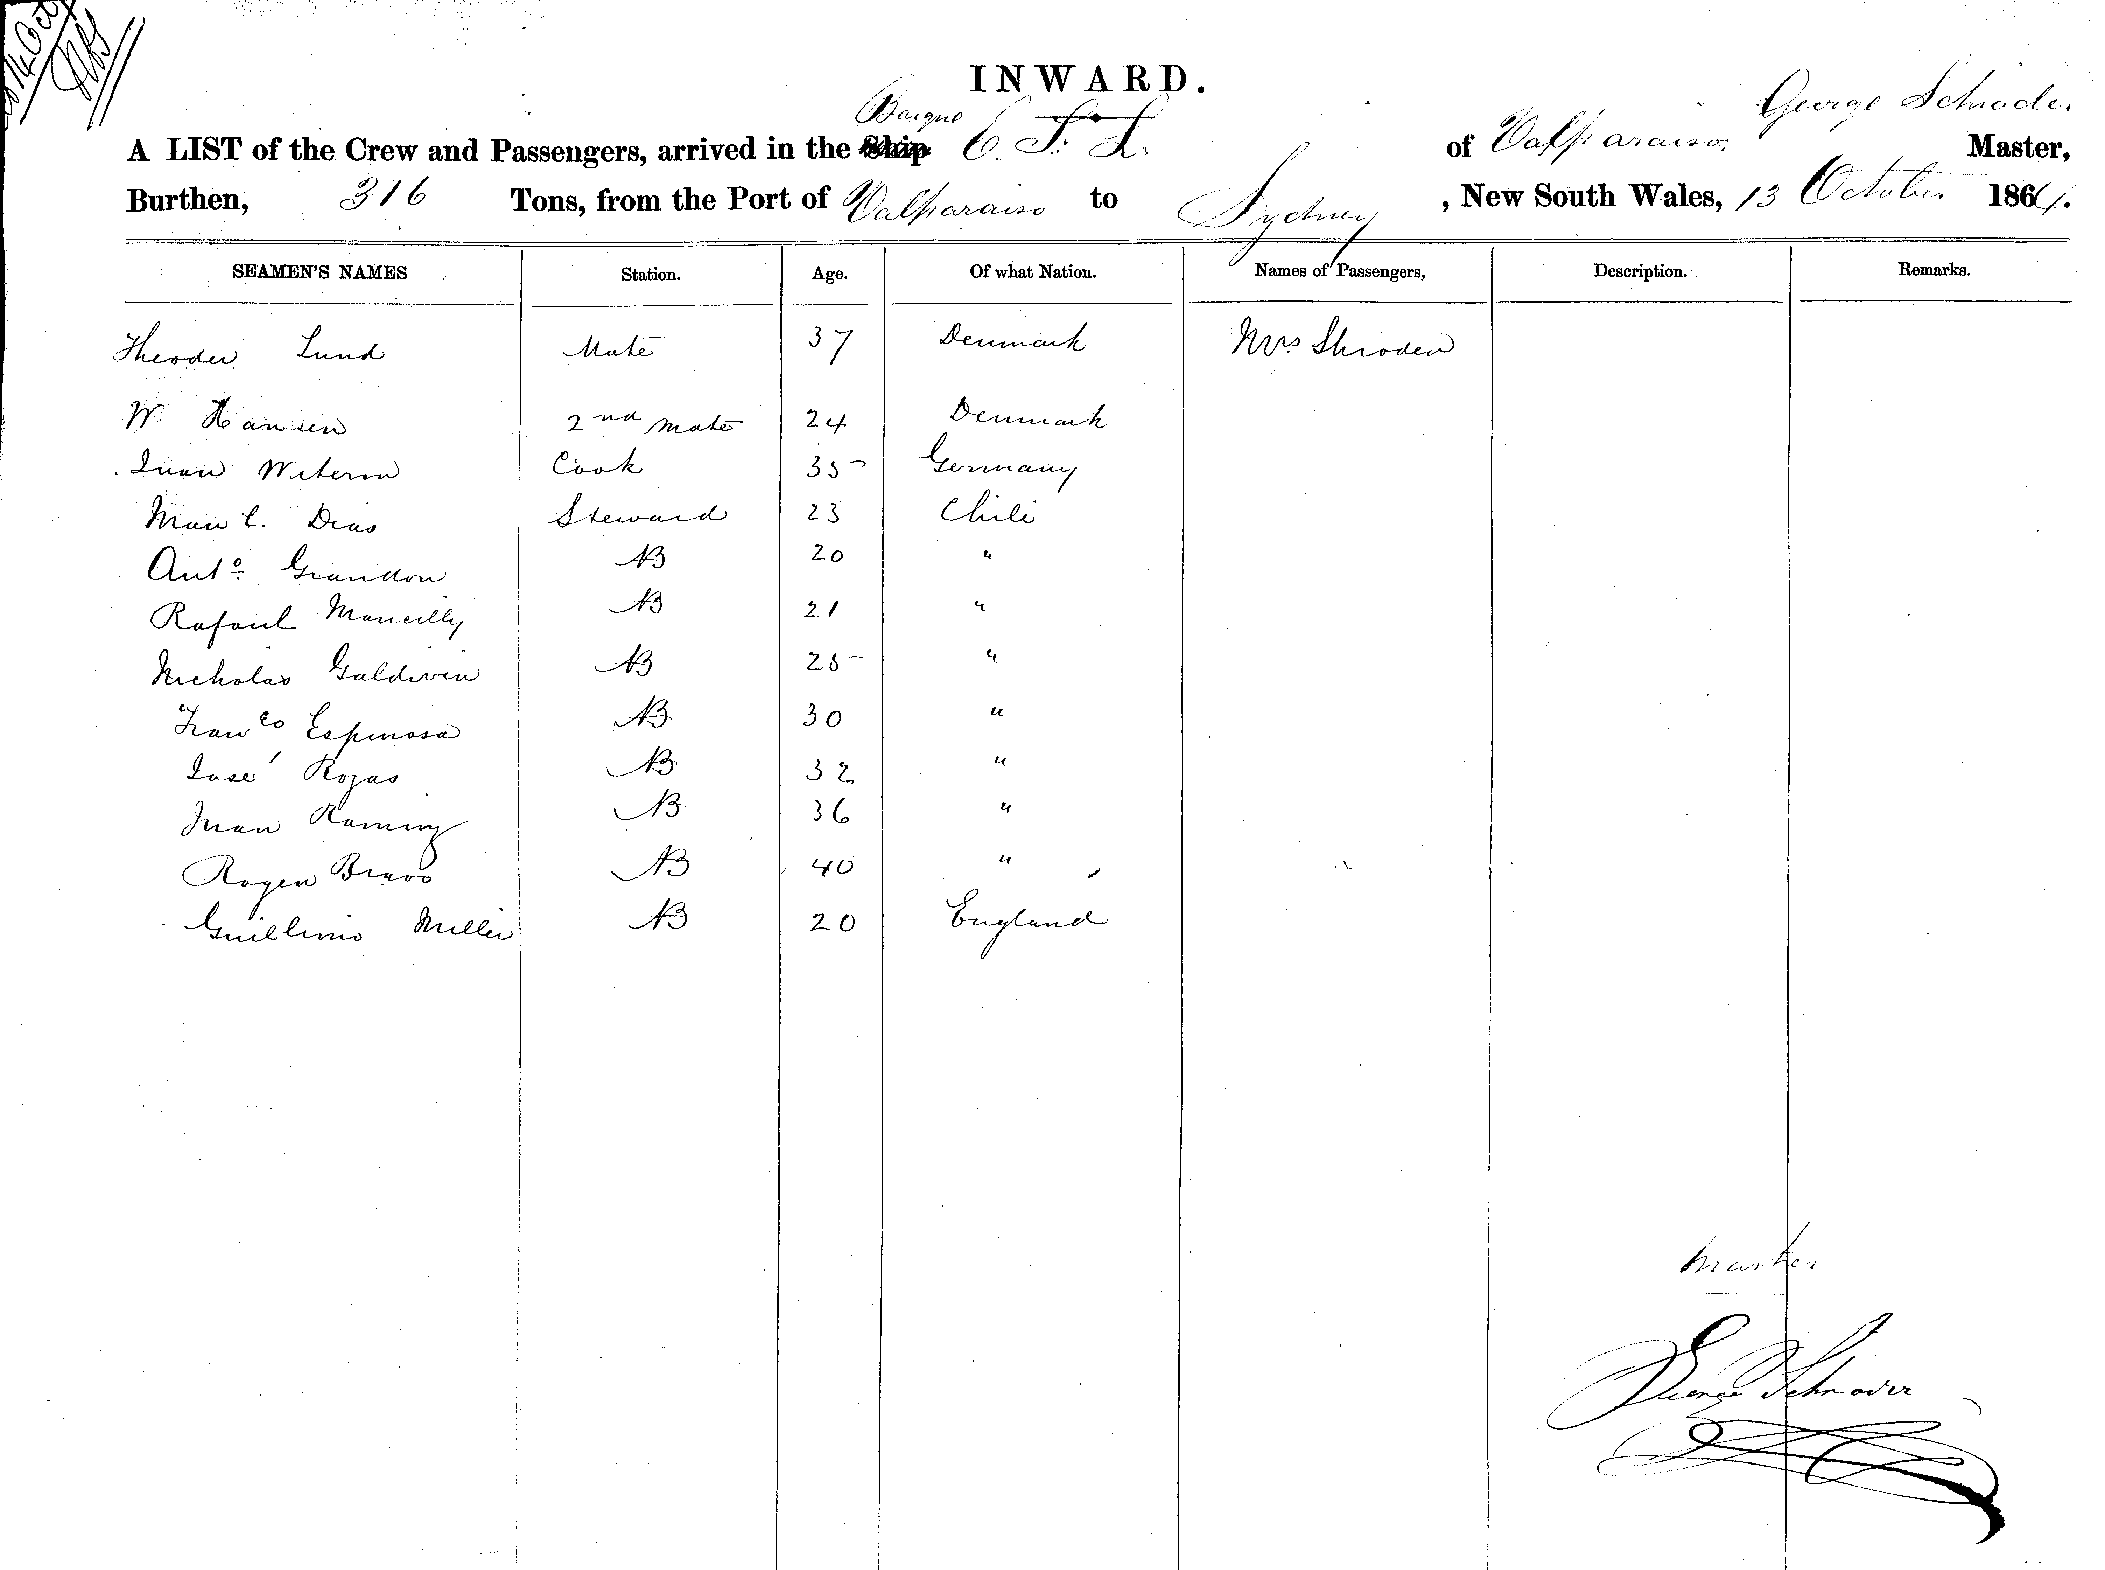 14 Oct
INWARD.
Barque George Schroder
A LIST of the Crew and Passengers, arrived in the Ship C. F. L. of Valparaiso, Master,
Burthen, 316 Tons, from the Port of Valparaiso to Sydney, New South Wales, 13 October 1864.
SEAMEN'S NAMES Station. Age. Of what Nation. Names of Passengers, Description. Remarks.
Theoder Lund Mate 37 Denmark Mrs Shroder
W Hansen 2nd Mate 24 Denmark
Juan Cook 35 Germany
Manl. Dias Steward 23 Chili
Anto Grandon AB 20 "
Rafael Mancilly AB 21 "
Nicholas Galdwin AB 25 "
Franco Espinosa AB 30 "
José Rozas AB 32 "
Juan Ramirez AB 36 "
Rogen Bravo AB 40 "
Guillimo Miller AB 20 England
Master
George Schroder